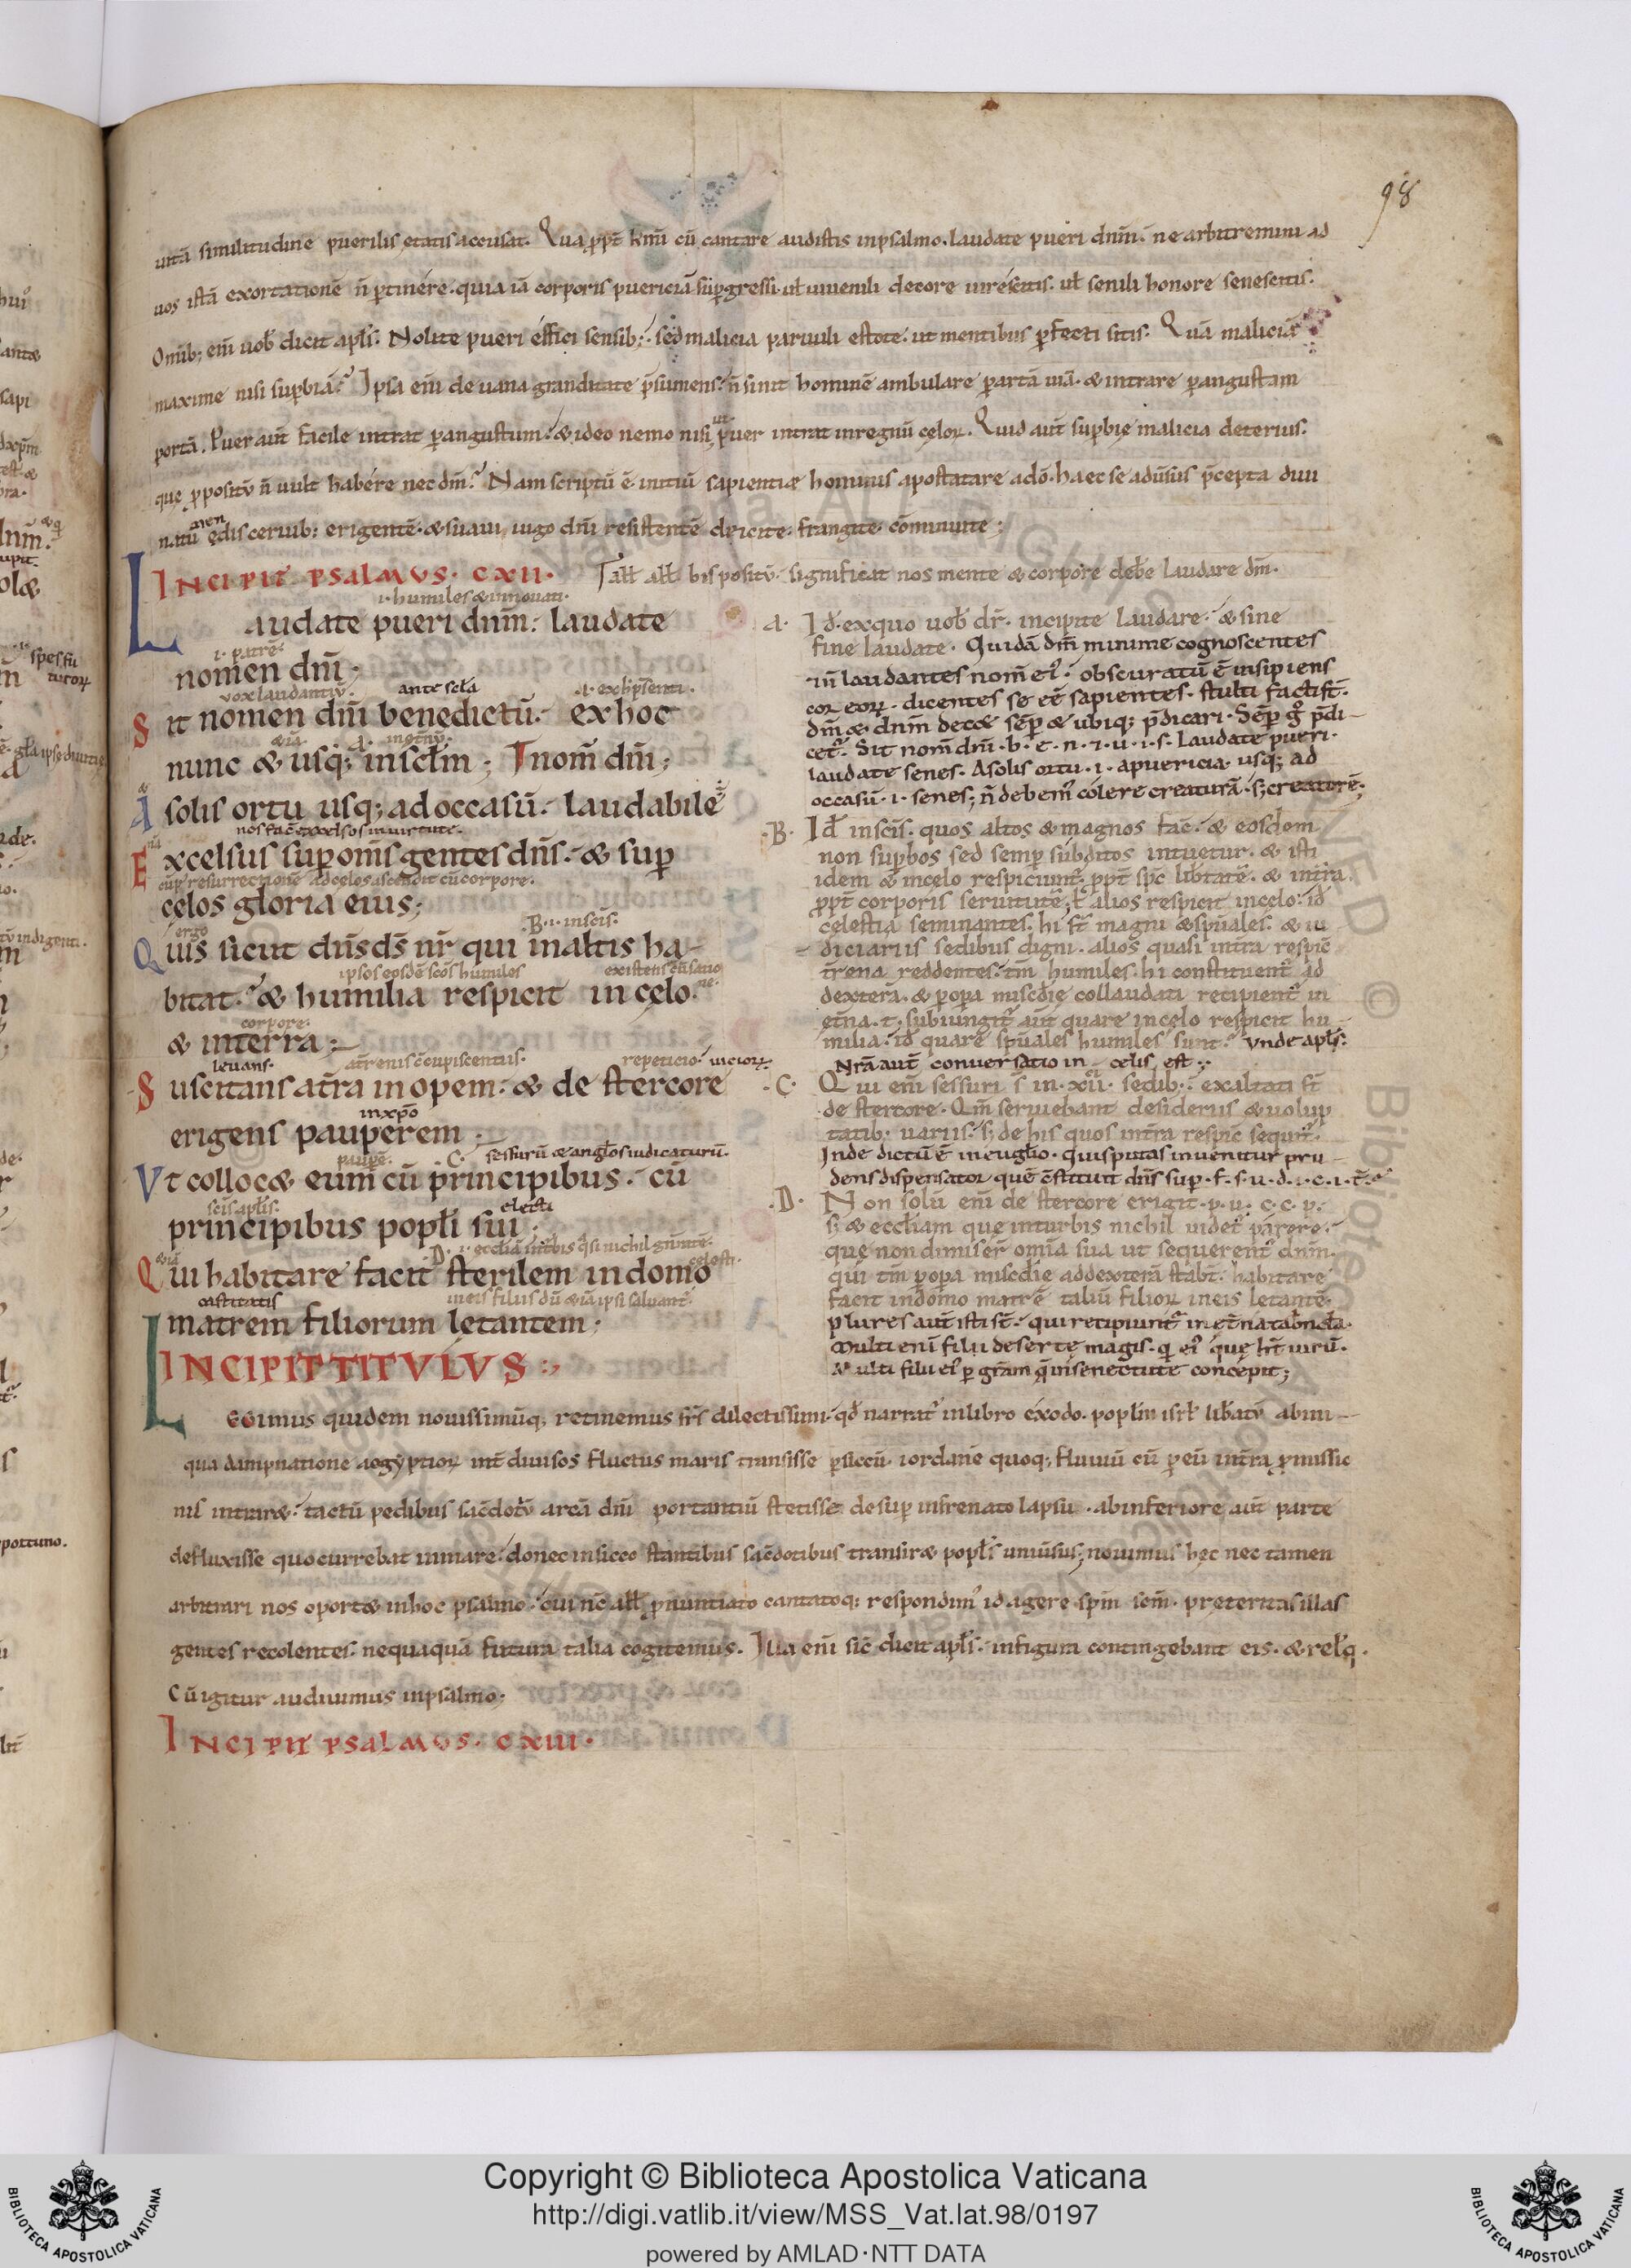 98
uitā similitudine puerilis ętatis accusat. Qua ꝓpt̄ kmī cū cantare audistis inpsalmo. laudate pueri dn̄m. ne arbitremini ad
uos istā exortationē n̄ ꝑtinére. quia iā corporis puericiā suꝑgressi. ut̄ iuuenili decore uiréscitis. ut̄ senili honore senescitis.
Omīb; eni uob̄ dicit apłs. Nolite pueri éffici sensib;. sed malicia paruuli estote. ut mentibus ꝑfecti sitis. Quā maliciā
maxime nisi suꝑbiā? Ipsa eni de uana granditate p̄sumens. n̄ sinit hominē ambulare ꝑartā uiā. & intrare ꝑangustam
portā. Puer aut̄ facile intrat ꝑangustum. & ideo nemo nisi ut puer intrat inregnū cęloꝝ. Quid aut̄ suꝑbię malicia deterius.
que ꝓpositū n̄ uult habére nec dm̄? Nam scriptū ē. initiū sapientiæ hominis apostatare adō. haec se aduersus p̄cepta diui
natū ędis ceruib; erigentē. & suaui iugo dn̄i resistentē deicite. frangite. cōminuite;
INCIPIT PSALMVS. CXII. Tałł ałł. bis positū. significat nos mente & corpore deb̄e laudare dm̄.
.i. humiles & innouati.
Laudate pueri dn̄m: laudate
.i. patrē.
nomen dn̄i;
uox laudantiū. ante scła .a. ex h̄ p̄senti.
Sit nomen dn̄i benedictū. ex hoc
nunc & usq; insc̄łm; Tnom̄ dn̄i;
A solis ortu usq; ad occasū. laudabile
nos facit excelsos inuirtute.
Excelsus suꝑ om̄s gentes dn̄s. & suꝑ
cū ꝑ resurrectionē ad cęlos ascendit cū corpore.
cęlos gloria eius;
ergo .B. .i. insc̄is.
Quis sicut dn̄s ds̄ nr̄ qui inaltis ha-
ipsos eosdē sc̄os humiles
bitat. & humilia respicit in cęlo.
corpore.
& interra;
leuans. at̄renis c̄cupiscentiis. repeticio. uicioꝝ.
Suscitans at̄ra inopem. & de stercore
inxp̄o
erigens pauperem;
pauperē. C. sessurū & anglōs iudicaturū.
Vt colloc& eum cū principibus. cū
sc̄is apłis. electi
principibus popłi sui;
.D. .i. ecclīa inurbis q̄si nichil gn̄rante. celesti.
Qui habitare facit sterilem indomo
castitatis ineis filiis dū & iā ipsi saluant̄.
matrem filiorum lętantem;
INCIPIT TITVLVS;
.a. Id. exquo uob̄ dr̄. incipite laudare. & sine
fine laudate. Quidā dm̄ minime cognoscentes
ul̄ laudantes nom̄ ei'. obscuratū ē insipiens
cor eoꝝ. dicentes se eē sapientes. stulti facti st̄.
dm̄ & dnm̄ dec& sēꝑ & ubiq; p̄dicari. Sēꝑ g̊ p̄di-
cet̄. Sit nom̄ dn̄i. b. e. n. 7. u. i. s. Laudate pueri.
laudate senes. Asolis ortu. i. apuericia. usq; ad
occasū. i. senes; n̄ debem' colere creaturā. s; creatorē;
.B. Id̄ insc̄is. quos altos & magnos fac̄. & eosdem
non suꝑbos sed semꝑ subditos intuetur. & isti
idem & incęlo respiciunt̄. ꝓpt̄ spc̄ libtatē. & int̄ra
ꝓpt̄ corporis seruitutē; t̄ alios respicit incęlo. id̄
cęlestia seminantes. hi st̄ magni & spūales. & iu-
diciariis sedibus digni. alios quasi int̄ra respic̄
t̄rena reddentes. tm̄ humiles. hi constituent̄ ad
dexterā. & ꝑopa misc̄dię collaudati recipient̄ in
ęt̄na. t. subiungit̄ aut̄ quare incęlo respicit hu-
milia. id̄ quare spūales humiles sunt. Vnde apłs:
Nr̄a aut̄ conuersatio in cęlis est;
.C. Qui eni sessuri s̄ in. xii. sedib;. exaltati st̄
de stercore. Qm̄ seruiebant desideriis & uolup
tatib; uariis. s; de his quos int̄ra respic̄ sequit̄.
Inde dictū ē ineuglīo. quis putas inuenitur pru-
dens dispensator quē c̄stituit dn̄s suꝑ. f. s. u. d. i. c. i. t̄.
.D. Non solū eni de stercore erigit. p. u. c. c. p.
s; & eccliam que inturbis nichil uidet̄ parere.
que non dimiser̄ om̄ia sua ut sequerent̄ dn̄m.
qui tm̄ ꝑopa misc̄die addexterā stabt̄. habitare
facit indomo matrē taliū filioꝝ ineis lętantē.
plures aut̄ isti st̄. qui recipiunt̄ inęt̄natabnc̄ła.
Multi eni filii desertę magis. q̄ ei' quę ht̄ uirū.
Multi filii ei' ꝑ grām q̄ insenectute concepit;
Nouimus quidem nouissimūq; retinemus fr̄s dilectissimi. qd̄ narrat̄ inlibro éxodo. popłm isrł libatū abini-
qua dampnatione aegyptioꝝ int̄ diuisos fluctus maris transisse ꝑsiccū. iordanē quoq; fluuiū cū ꝑeū int̄ra ꝓmissio
nis intrar&. tactū pedibus sac̄dotū arcā dn̄i portantiū stetisse desuꝑ infrenato lapsu. abinferiore aut̄ parte
defluxisse quo currebat inmare. donec insicco stantibus sac̄dotibus transir& popłs uniūsus; nouimus hęc nec tamen
arbitrari nos oport& inhoc psalmo. cui nc̄ ałł ꝓnuntiato cantatoq; respondim' id agere spm̄ scm̄. preteritas illas
gentes recolentes. nequaquā futura talia cogitemus. Illa eni sic̄ dicit apłs. infigura contingebant eis. & relꝗ.
Cū igitur audiuimus inpsalmo;
INCIPIT PSALMVS. CXIII.
Copyright © Biblioteca Apostolica Vaticana
http://digi.vatlib.it/view/MSS_Vat.lat.98/0197
powered by AMLAD·NTT DATA
BIBLIOTECA APOSTOLICA VATICANA
BIBLIOTECA APOSTOLICA VATICANA